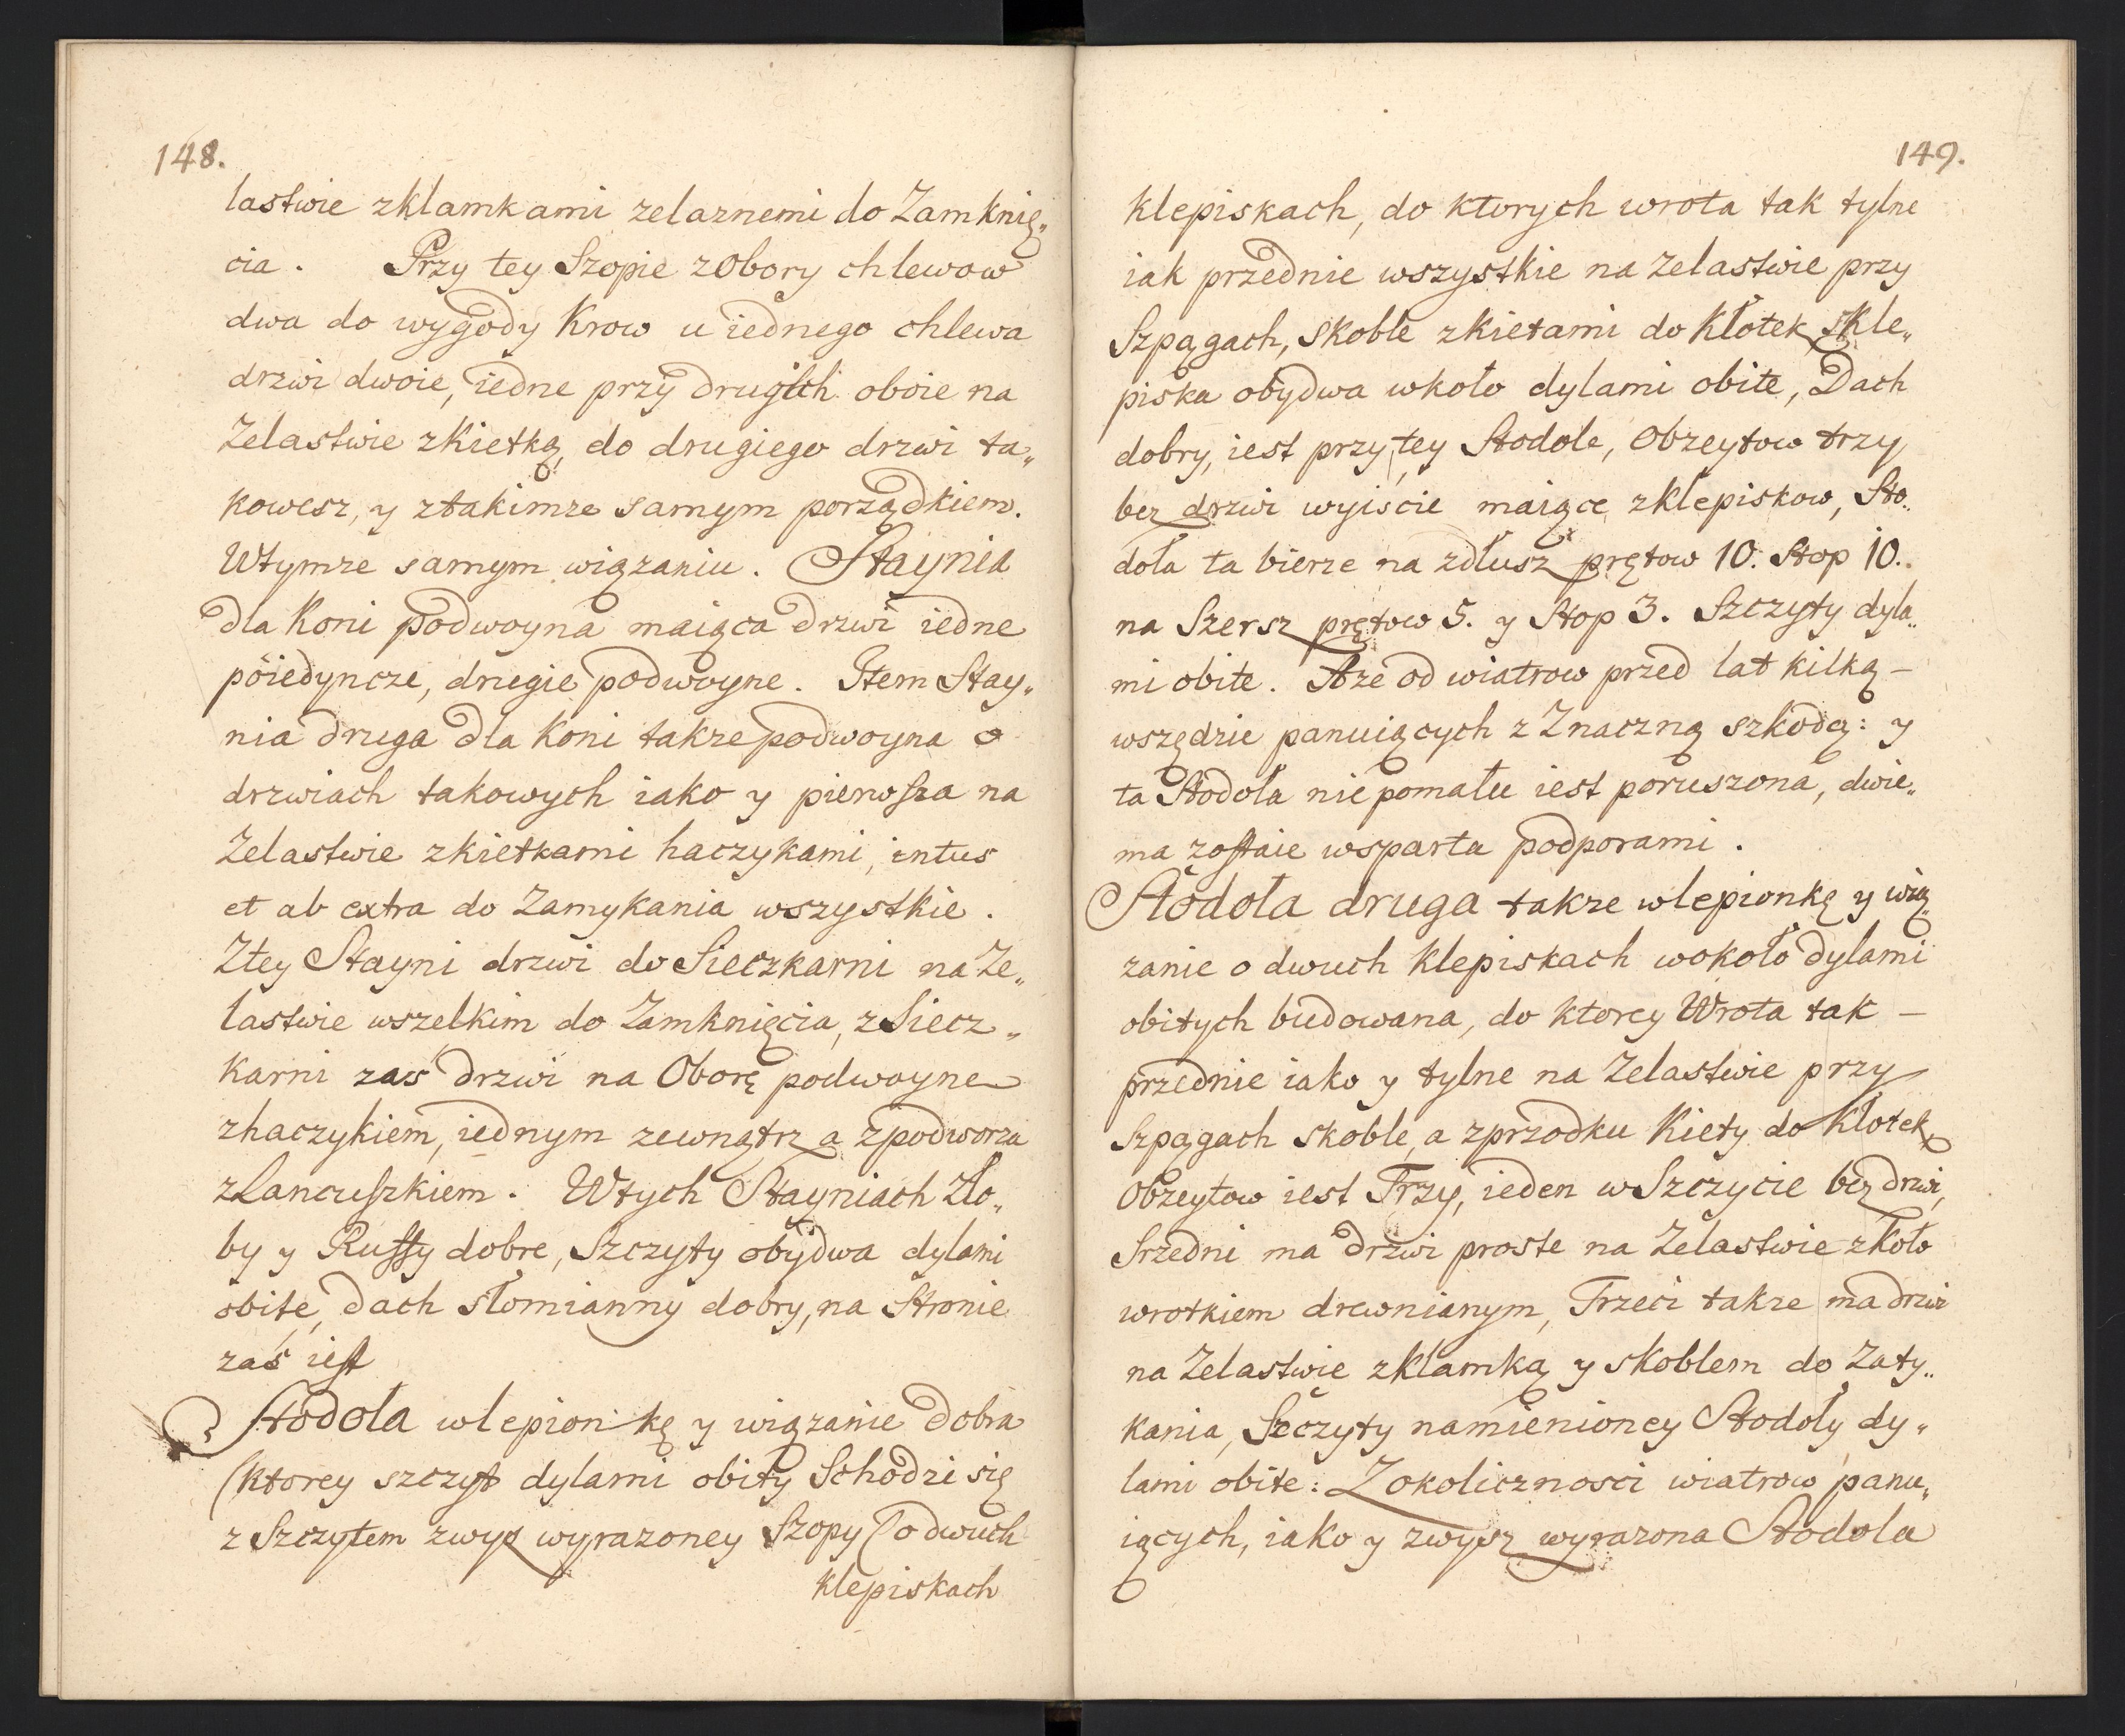 148.
lastwie zklamkami zelaznemi do Zamknię„
cia . Przy tey Szopie zObory chlewow
dwa do wygody Krow u iednego chlewa
drzwi dwoie, iedne przy drugich oboie na
Zelastwie zkietką, do drugiego drzwi ta„
kowesz, y ztakimze samym porządkiem.
Wtymze samym wiązaniu . Staynia
dla Koni podwoyna maiąca drzwi iedne
poiedyncze, drugie podwoyne . Item Stay„
nia druga dla Koni takze podwoyna o
drzwiach takowych iako y pierwsza na
Zelastwie zkietkami haczykami, intus
et ab extra do Zamykania wszystkie .
Ztey Stayni drzwi do Sieczkarni na Ze„
lastwie wszelkim do Zamknięcia, zSiecz„
Karni zaś drzwi na Oborę podwoyne
zhaczykiem, iednym zewnątrz a zpodworza
zLancuszkiem . Wtych Stayniach Zło„
by y Ruszty dobre, Szczyty obydwa dylami
obite, dach słomianny dobry, na Stronie
zaś iest
Stodoła wlepionkę y wiązanie dobra
(ktorey szczyt dylami obity Schodzi się
z Szczytem zwysz wyrazoney Szopy (o dwuch
klepiskach
149.
klepiskach, do ktorych wrota tak tylne
iak przednie wszystkie na Zelastwie przy
Szpągach, skoble zkietami do Kłotek, Kle„
piska obydwa wkoło dylami obite, Dach
dobry, iest przy tey Stodole, Obzeytow trzy
bez drzwi wyiscie maiące zklepiskow, Sto„
doła ta bierze na zdłusz prętow 10. Stop 10.
na Szersz prętow 5. y Stop 3. Szczyty dyla„
mi obite . Aze od wiatrow przed lat kilką –
wszędzie panuiących z Znaczną szkodą: y
ta Stodoła nie pomału iest poruszona, dwie„
ma zostaie wsparta podporami .
Stodoła druga takze wlepionkę y wią„
zanie o dwuch klepiskach wokoło dylami
obitych budowana, do ktorey Wrota tak –
przednie iako y tylne na Zelastwie przy
Szpągach skoble, a zprzodku Kiety do Kłotek
Obzeytow iest Trzy, ieden wSzczycie bez drzwi,
Srzedni ma drzwi proste na Zelastwie zkoło
wrotkiem drewnianym, Trzeci takze ma drzwi
na Zelastwie zklamką y skoblem do Zaty„
kania, Szczyty namienioney Stodoły dy„
lami obite: Z okolicznosci wiatrow panu„
iących, iako y zwysz wyrazona Stodola